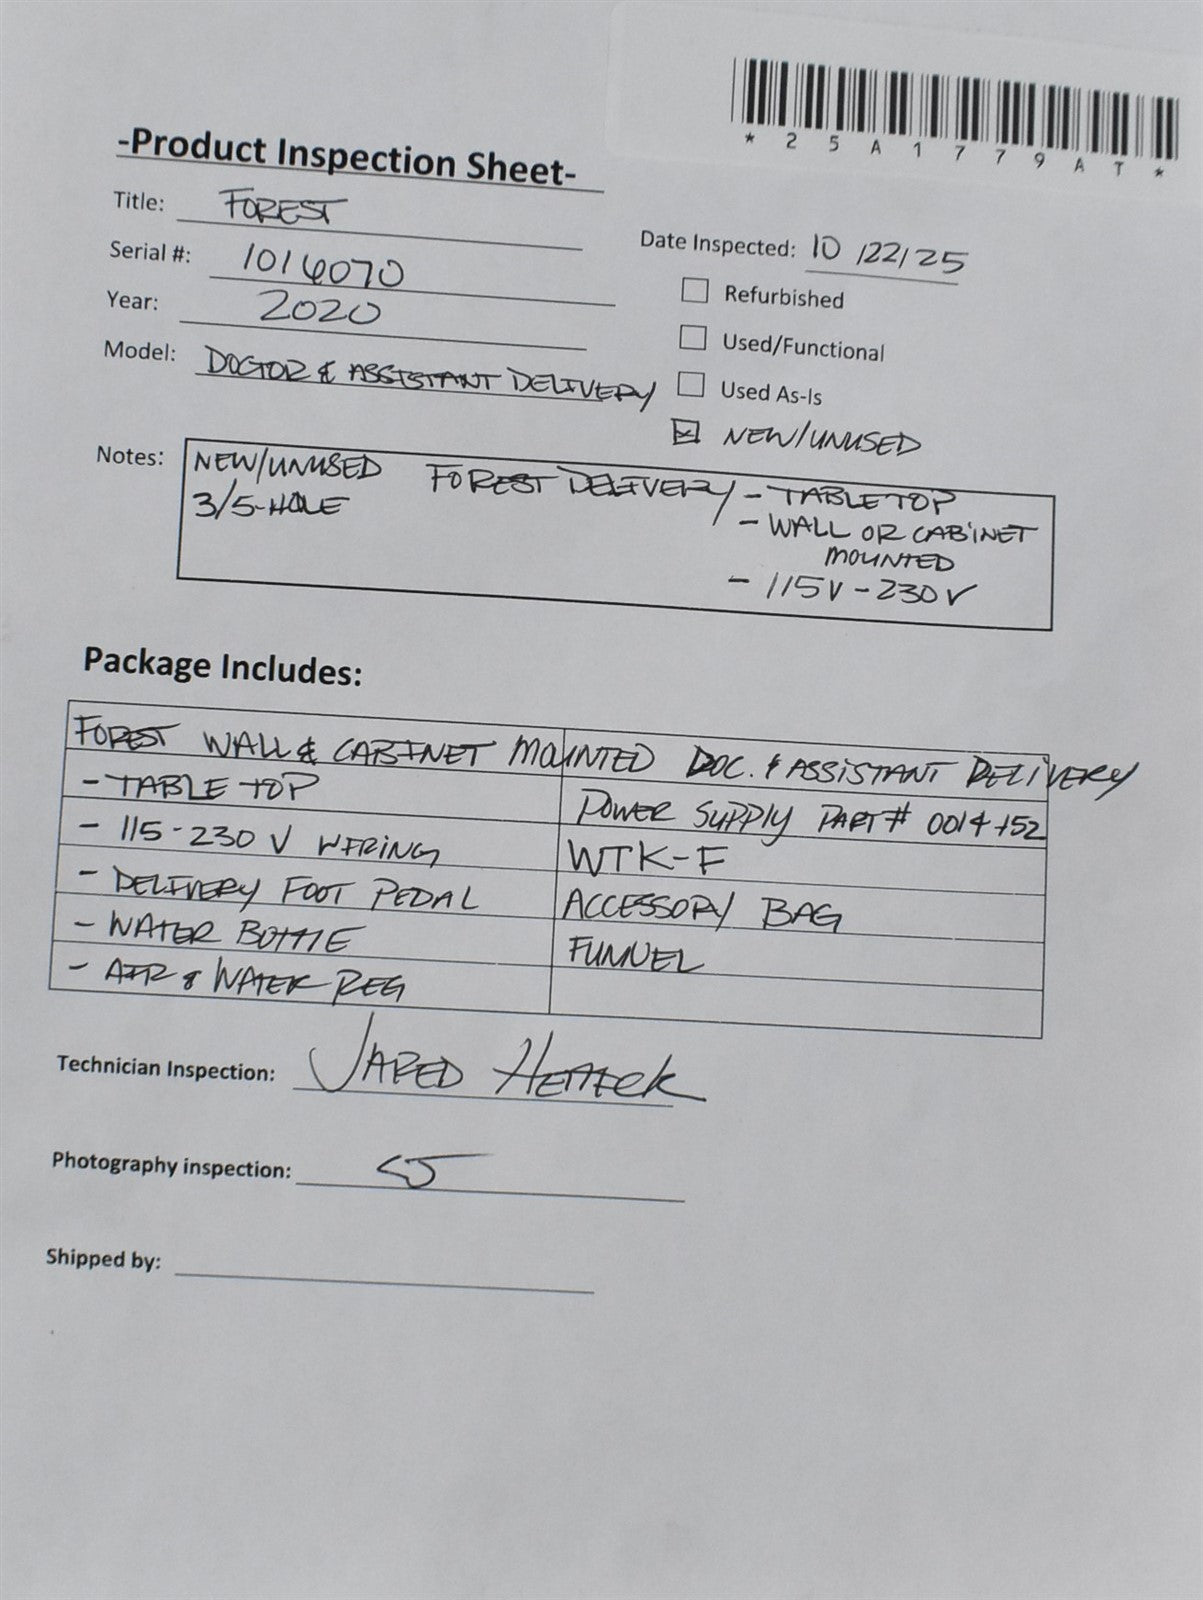 * 2 5 A 1 7 7 9 A T *
-Product Inspection Sheet-
Title: FOREST
Date Inspected: 10/22/25
Serial #: 1016070
Refurbished
Year: 2020
Used/Functional
Model: DOCTOR & ASSISTANT DELIVERY
Used As-Is
NEW/UNUSED
Notes: NEW/UNUSED FOREST DELIVERY - TABLE TOP
3/5-HOLE
- WALL OR CABINET
MOUNTED
- 115V-230V
Package Includes:
FOREST WALL & CABINET MOUNTED DOC. & ASSISTANT DELIVERY
- TABLE TOP
POWER SUPPLY PART#
- 115-230 V WIRING
WTK-F
- DELIVERY FOOT PEDAL
ACCESSORY BAG
- WATER BOTTLE
FUNNEL
- AIR & WATER REG
Technician Inspection: JARED
Photography inspection:
Shipped by: